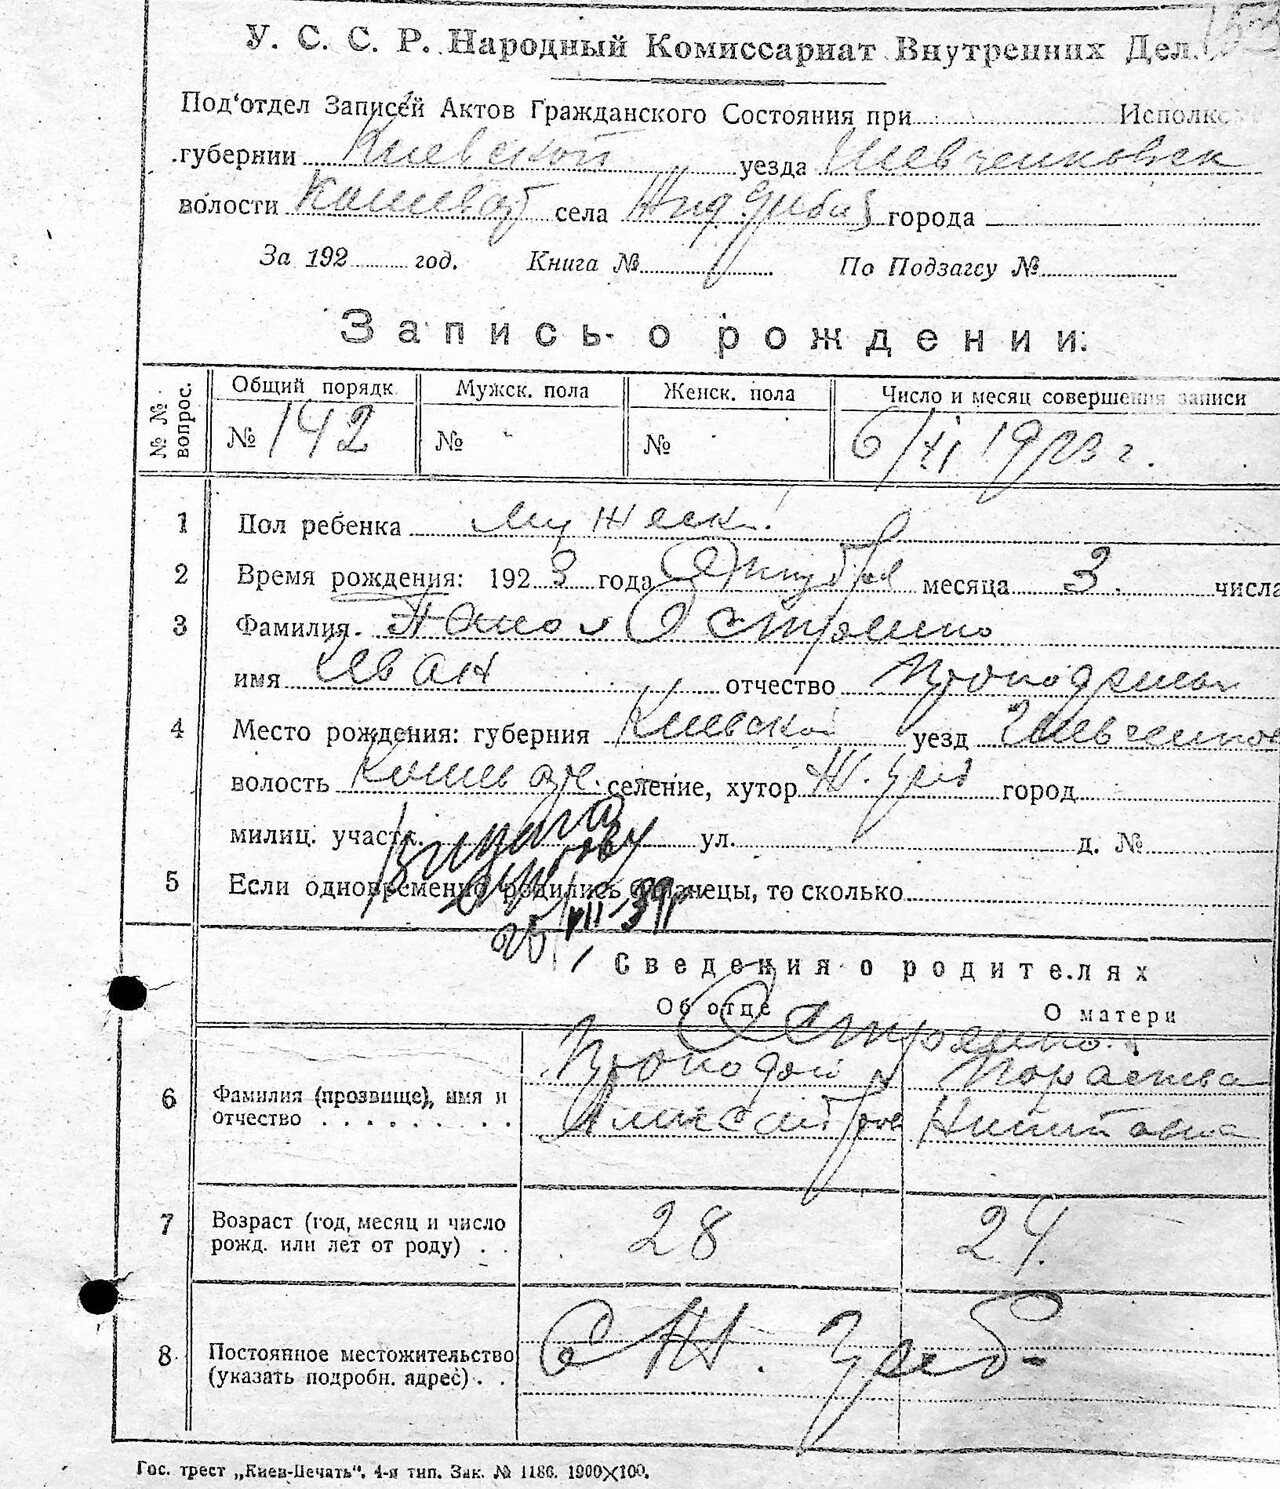 У. С. С. Р. Народный Комиссариат Внутренних Дел.
Под'отдел Записей Актов Гражданского Состояния при Исполком
губернии Киевской уезда Шевченковск
волости Кошеват села Жид. города
За 192 год. Книга № По Подзагсу №
Запись о рождении.
№ № вопрос. Общий порядк. Мужск. пола Женск. пола Число и месяц совершения записи
№ 142 № № 6/XI 1923 г.
1 Пол ребенка Мужеск.
2 Время рождения: 1923 года Октября месяца 3 числа
3 Фамилия Остренко
имя Иван отчество
4 Место рождения: губерния Киевской уезд Шевченков
волость Кошеват. селение, хутор Ж. Греб город
милиц. участ. ул. д. №
5 Если одновременно родились близнецы, то сколько
25/VII-39г
Сведения о родителях
Об отце О матери
Остренко.
6 Фамилия (прозвище), имя и отчество Александров Параскева Никитовна
7 Возраст (год, месяц и число рожд. или лет от роду) 28 24.
8 Постоянное местожительство (указать подробн. адрес) с Ж. Греб-
Гос. трест „Киев-Печать". 4-я тип. Зак. № 1186. 1900×100.